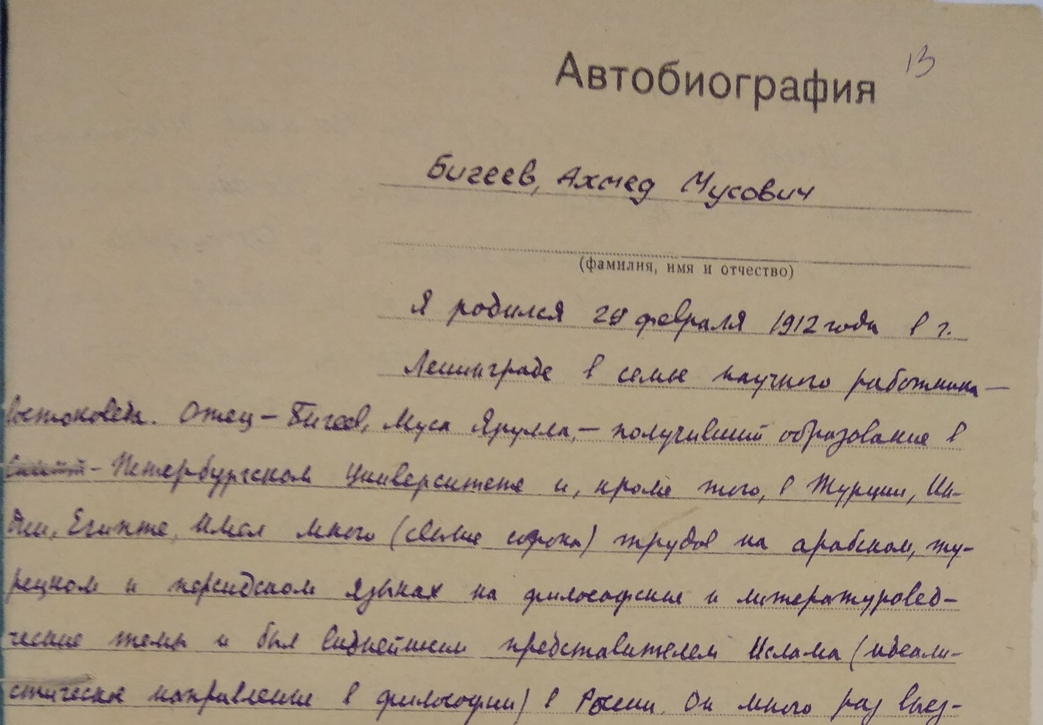 13
Автобиография
Бигеев, Ахмед Мусович
(фамилия, имя и отчество)
Я родился февраля 1912 года в г.
Ленинграде в семье научного работника —
востоковеда. Отец — Бигеев, Муса Ярулла, — получивший образование в
Санкт-Петербургском Университете и, кроме того, в Турции, Ин-
дии, Египте, имел много (свыше сорока) трудов на арабском, ту-
рецком и персидском языках на философские и литературовед-
ческие темы и был виднейшим представителем Ислама (идеали-
стическое направление в философии) в России. Он много раз выез-